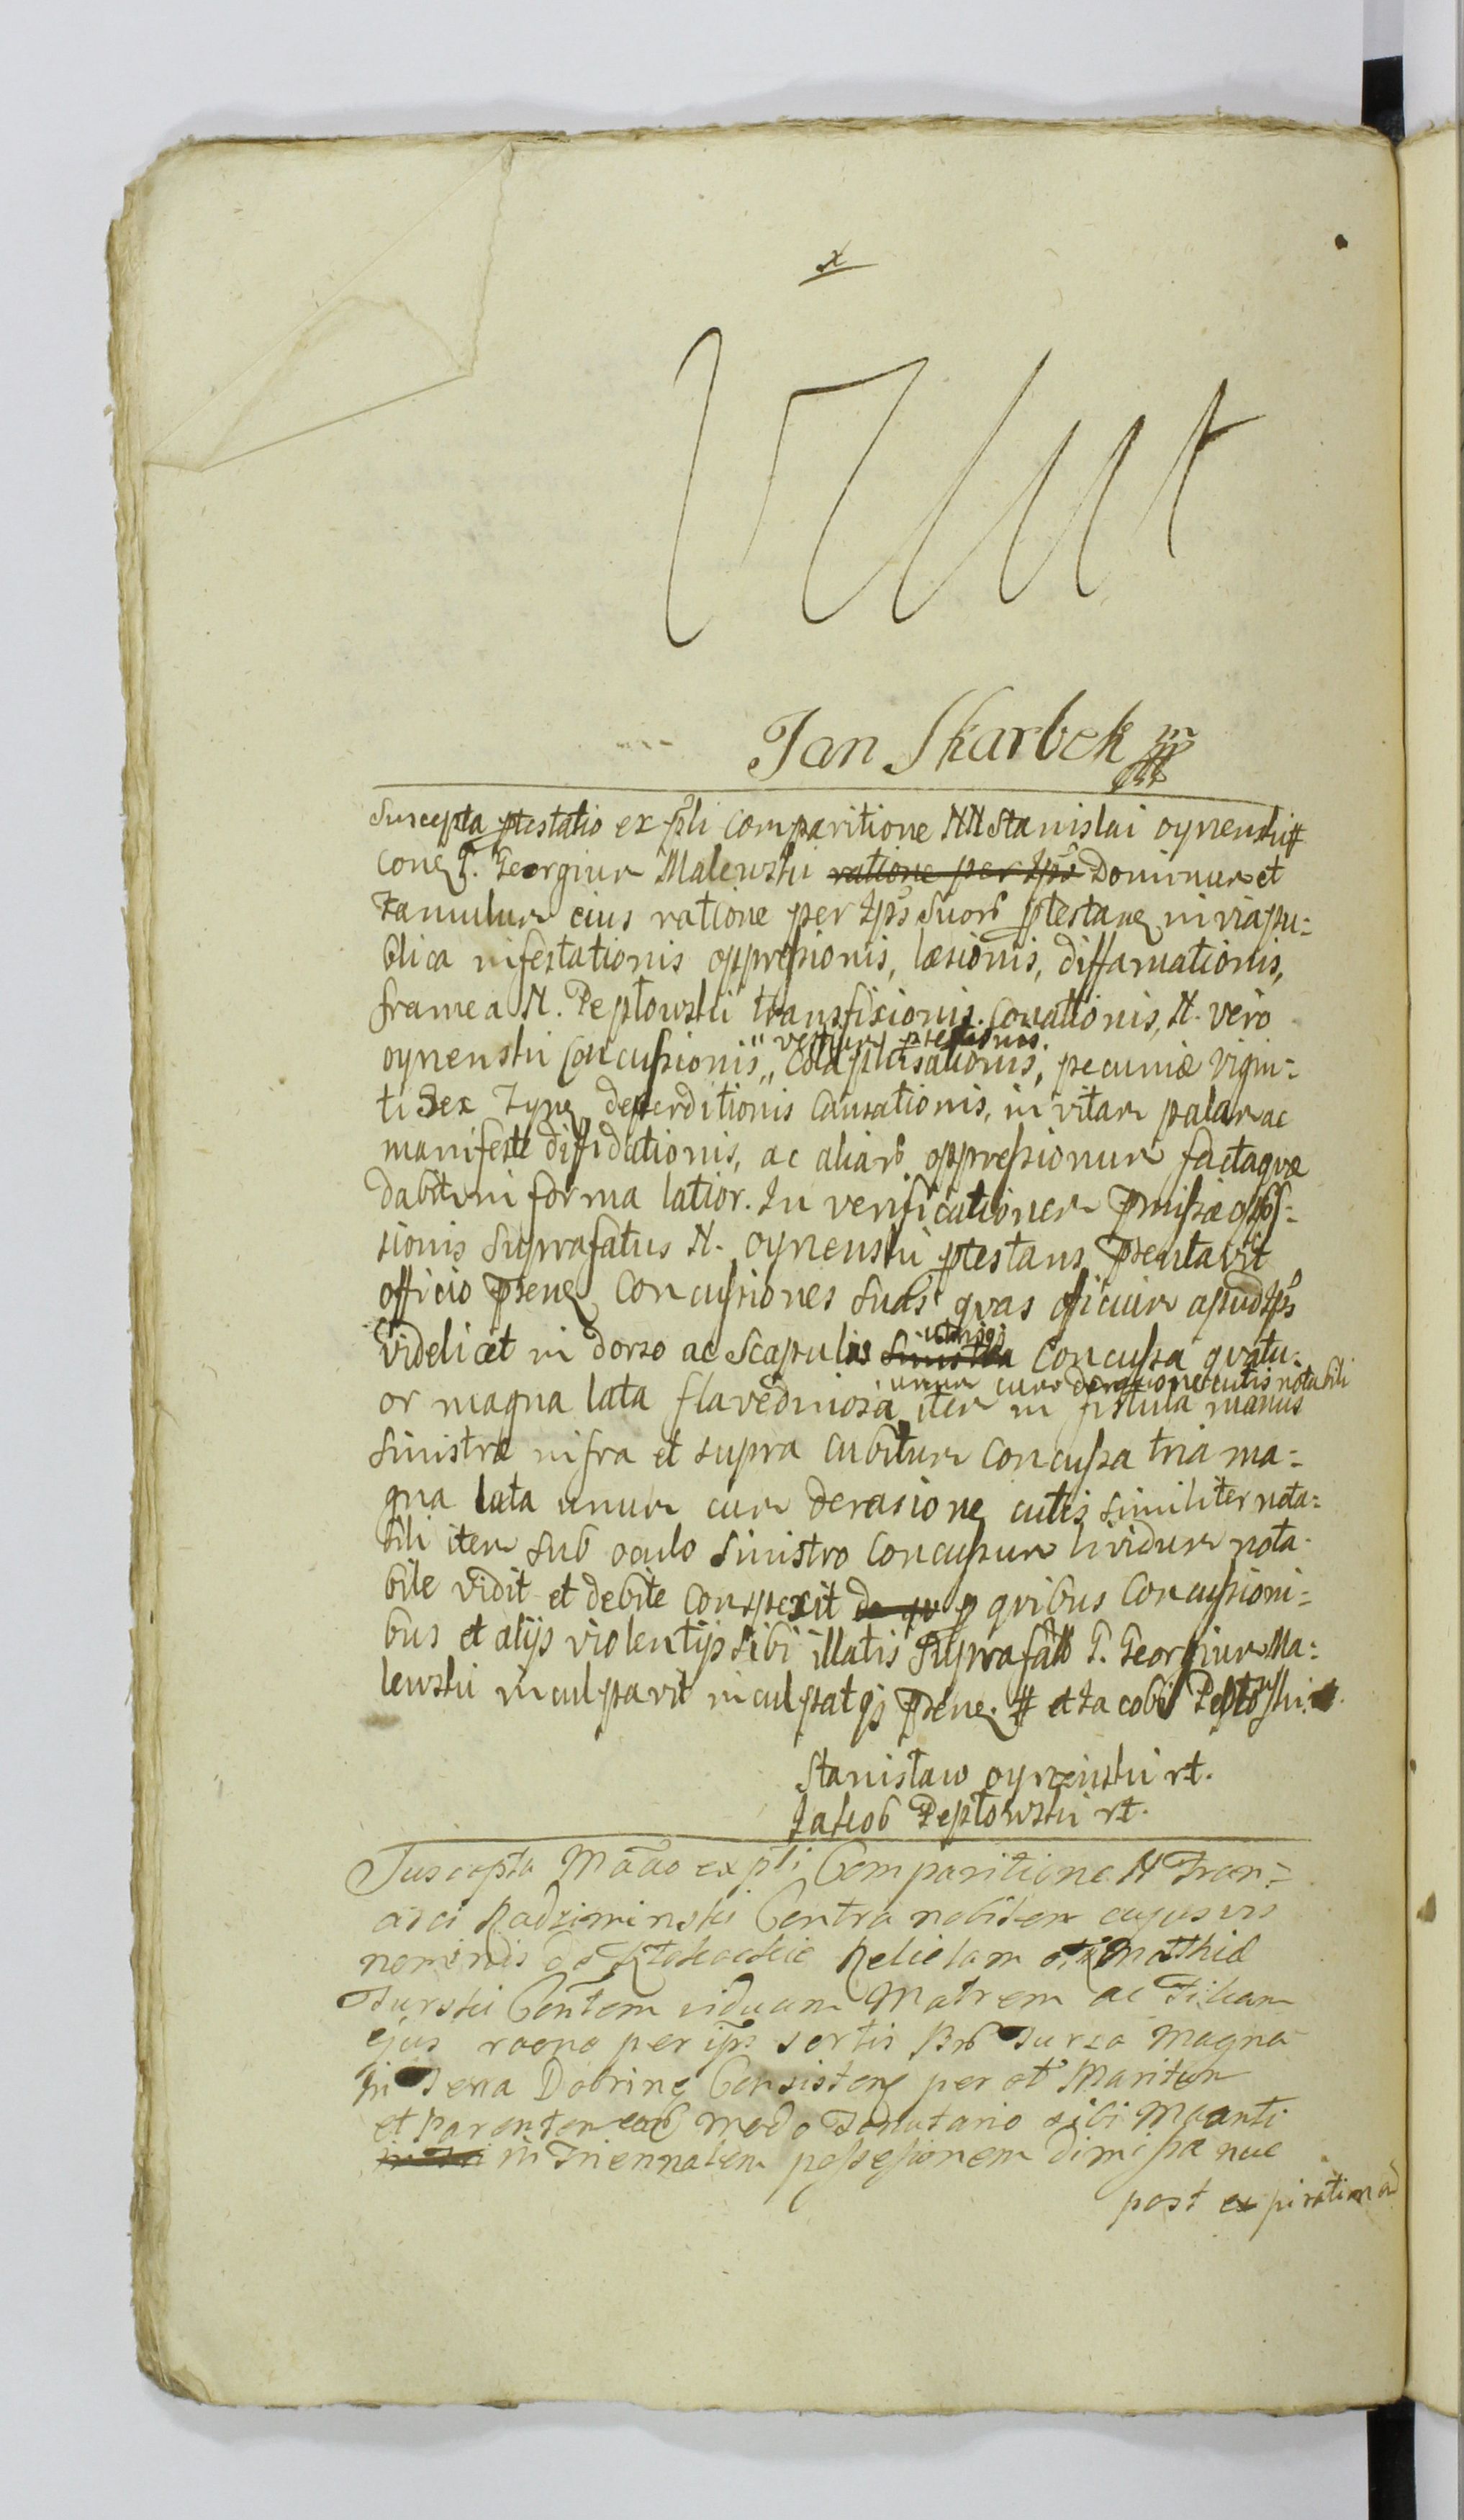 x
Vt
Jan Skarbek mp
Suscepta ptestatio ex pŝli Comparitione NN Stanislai oynenski #
Con. G. Georgium Malewski ratione per Ips Dominum et
Famulum eius ratione per Ips Suord ptestane in via pu=
blica infestationis oppressionis, læsionis, diffamationis,
framea N. Pepłowski transfixionis. Conationis, N. vero
vestium
oynenski Concussionis „ Colaphisationis, pecuniæ vigin=
ti Sex Tynf deperditionis Causationis, in vitam palam ac
manifeste diffidationis, ac aliard oppressionum facta quæ
dabitur in forma latior. In verificationem pmissæ oppres=
sionis Suprafatus N. oynenski ptestans psentavit
officio psen Concussiones Suas quas officium apud Ips
utrisqz
videlicet in dorso ac Scapulis Sinistra Concussa quatu=
unum cum derasione cutis notabili
or magna lata flavedinosa item in fistula manus
Sinistræ infra et supra Cubitum Concussa tria ma=
gna lata unum cum derasione cutis similiter nota=
bili item Sub oculo Sinistro Concussum lividum nota=
bile vidit et debite Conspexit de qu p quibus Concussioni=
bus et alijs violentijs Sibi illatis Suprafatd G. Georgium Ma=
lewski inculpavit inculpatqz psen. # et Jacobi Pepłowski.
Stanisław oynenski rt.
Jakob Pepłowski rt.
Suscepta Maão ex pŝli Comparitione N Fran=
cisci Radziminski Contra nobilem cujusvis
nominis de Relictam olim Matthiæ
Turski Contem viduam Matrem ac Filiam
ejus raone per ips sortis Bnd Turza Magna
in Terra Dobrinen Consisten per ot Maritum
et Parentem modo Tenutario sibi Maanti
in Triennalem possessionem dimissæ nec
post expiration